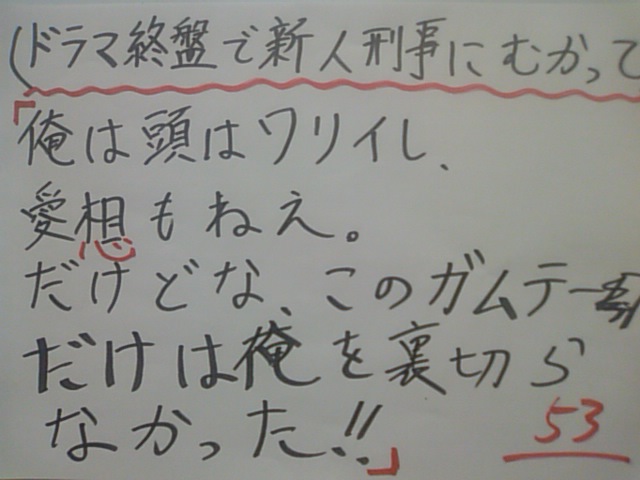 (ドラマ終盤で新人刑事にむかって
「俺は頭はワリイし、
愛想もねえ。
だけどな、このガムテー
だけは俺を裏切ら
なかった!!」
53